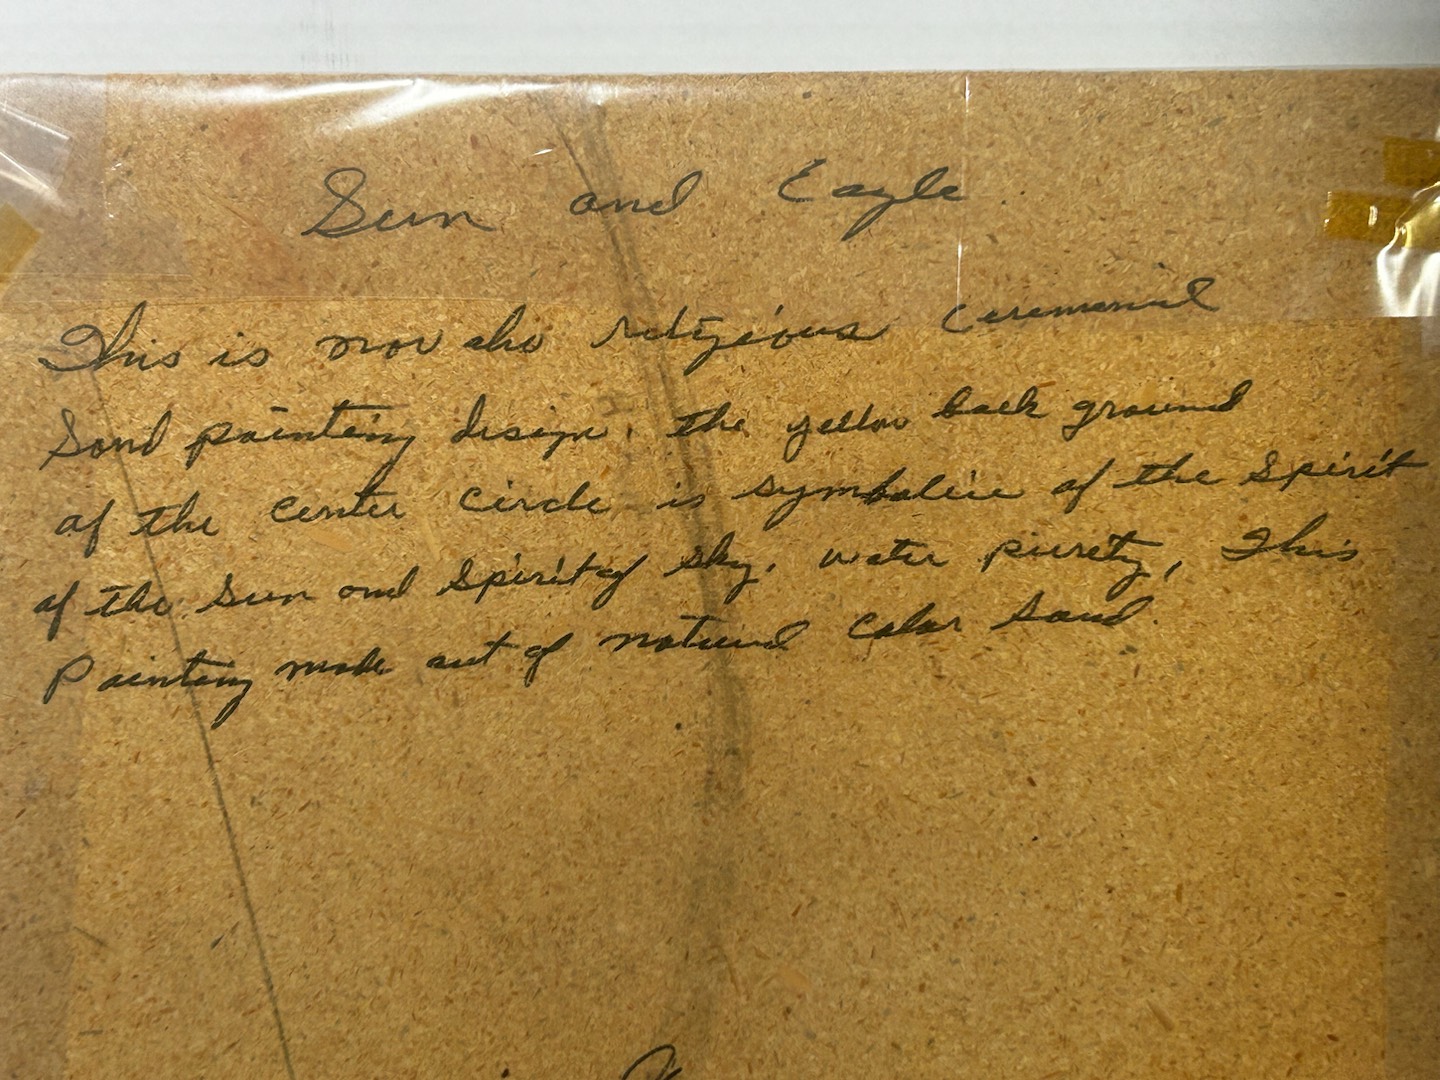 Sun and Eagle
This is novaho religious ceremonial
Sand painting design, the yellow back ground
of the center circle is symbolice of the Spirit
of the Sun and Spirit of sky, water purety, This
Painting made out of natural color sand.